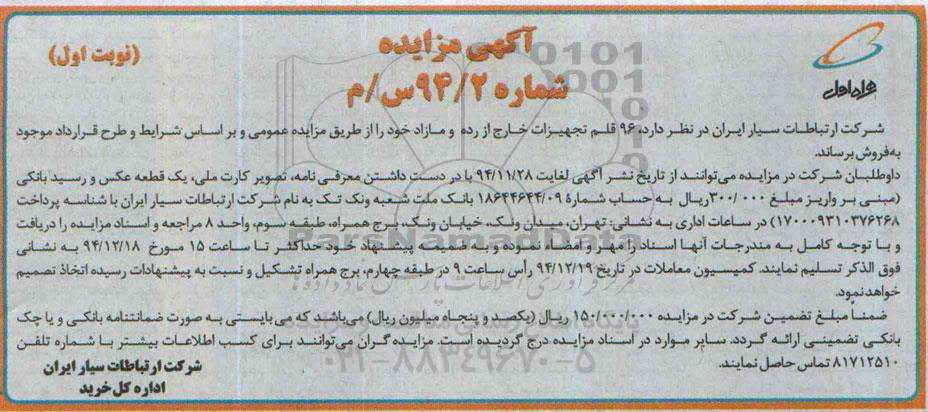 آگهی مزایده
شماره ۹۴/۲/س/م
(نوبت اول)
همراه اول
شرکت ارتباطات سیار ایران در نظر دارد، ۹۶ قلم تجهیزات خارج از رده و مازاد خود را از طریق مزایده عمومی و بر اساس شرایط و طرح قرارداد موجود
به فروش برساند.
داوطلبان شرکت در مزایده می‌توانند از تاریخ نشر آگهی لغایت ۹۴/۱۱/۲۸ با در دست داشتن معرفی نامه، تصویر کارت ملی، یک قطعه عکس و رسید بانکی
(مبنی بر واریز مبلغ ۳۰۰/۰۰۰ ریال به حساب شمارۀ ۱۸۶۴۴۶۴۴/۰۹ بانک ملت شعبه ونک تک به نام شرکت ارتباطات سیار ایران با شناسه پرداخت
۱۷۰۰۰۹۳۱۰۳۷۶۲۶۸) در ساعات اداری به نشانی: تهران، میدان ونک، خیابان ونک، برج همراه، طبقه سوم، واحد ۸ مراجعه و اسناد مزایده را دریافت
و با توجه کامل به مندرجات آنها اسناد را مهر و امضاء نموده و به ضمیمه پیشنهاد خود حداکثر تا ساعت ۱۵ مورخ ۹۴/۱۲/۱۸ به نشانی
فوق الذکر تسلیم نمایند. کمیسیون معاملات در تاریخ ۹۴/۱۲/۱۹ رأس ساعت ۹ در طبقه چهارم، برج همراه تشکیل و نسبت به پیشنهادات رسیده اتخاذ تصمیم
خواهد نمود.
ضمنا مبلغ تضمین شرکت در مزایده ۱۵۰/۰۰۰/۰۰۰ ریال (یکصد و پنجاه میلیون ریال) می‌باشد که می بایستی به صورت ضمانتنامه بانکی و یا چک
بانکی تضمینی ارائه گردد. سایر موارد در اسناد مزایده درج گردیده است. مزایده گران می‌توانند برای کسب اطلاعات بیشتر با شماره تلفن
۸۱۷۱۲۵۱۰ تماس حاصل نمایند.
شرکت ارتباطات سیار ایران
اداره کل خرید
ParsNamadData
۰۲۱-۸۸۳۴۹۶۷۰-۵